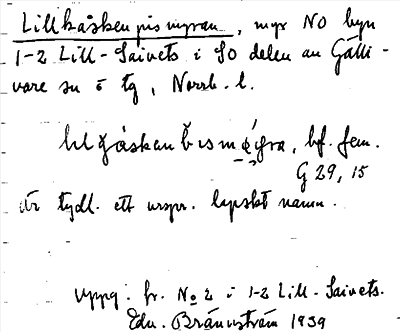 Lillkåskenpismyran, myr NO byn
1-2 Lill-Saivets i SO delen av Gälli-
vare sn o tg, Norrb. l.
bf. fem.
G 29, 15
är tydl. ett urspr. lapskt namn.
Uppg: fr. No 2 i 1-2 Lill-Saivets.
Edv. Brännström 1939